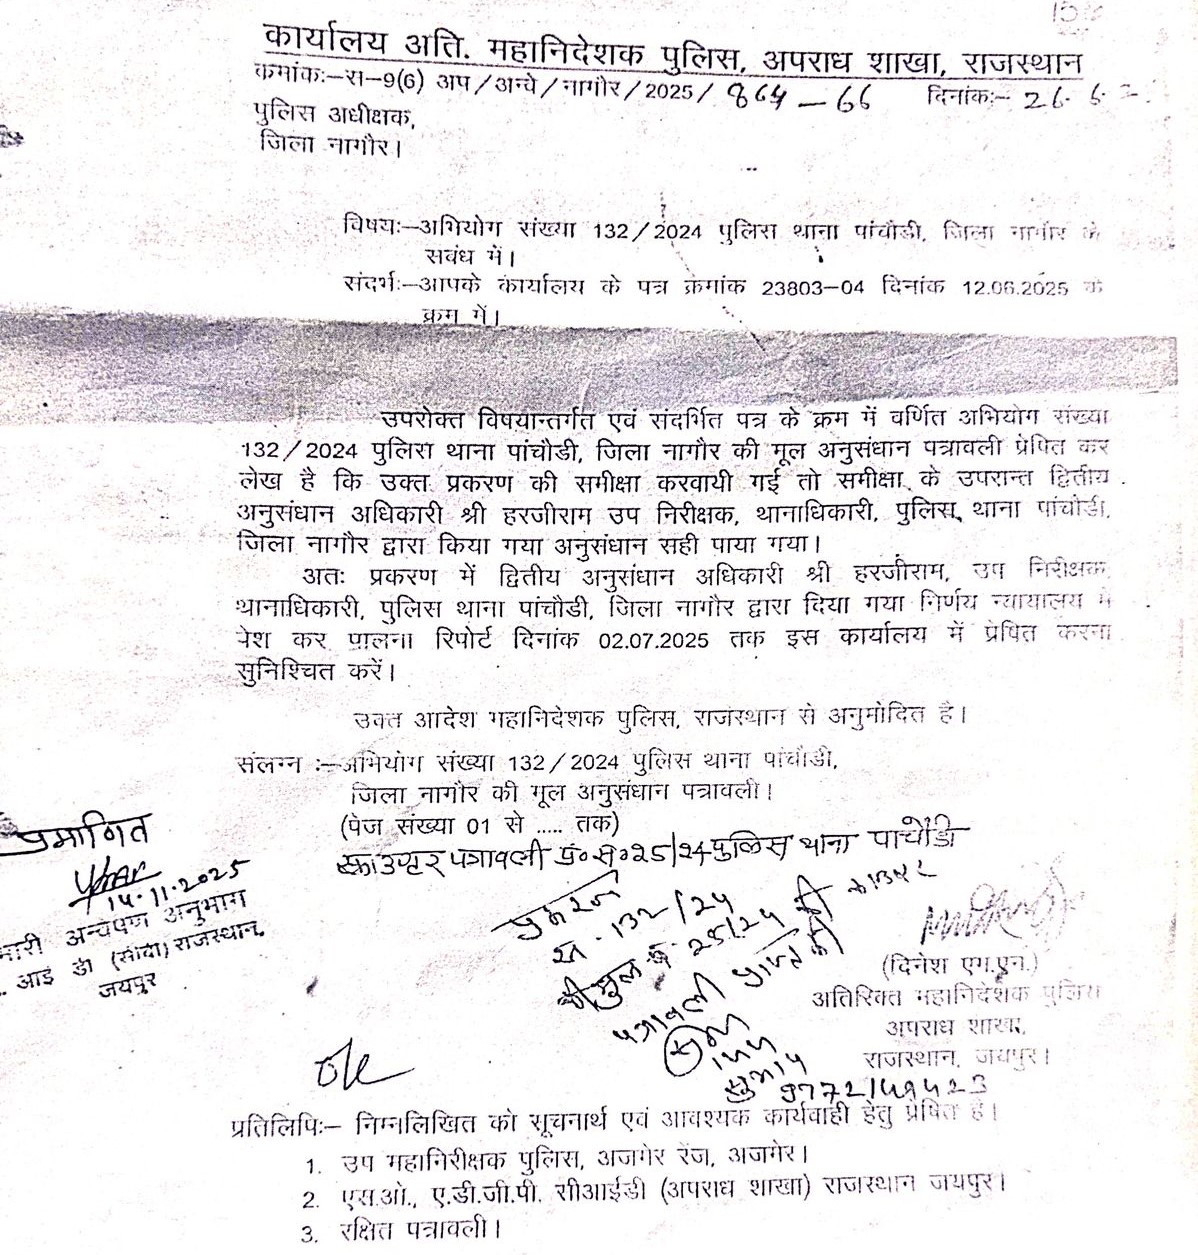 कार्यालय अति. महानिदेशक पुलिस, अपराध शाखा, राजस्थान
क्रमांक:–स–9(6) अप/अन्वे/नागौर/2025/ 864 – 66 दिनांक:– 26.6.
पुलिस अधीक्षक,
जिला नागौर।
विषय:–अभियोग संख्या 132/2024 पुलिस थाना पांचौडी, जिला नागौर के
सबंध में।
संदर्भ:–आपके कार्यालय के पत्र क्रमांक 23803–04 दिनांक 12.06.2025 के
क्रम में।
उपरोक्त विषयान्तर्गत एवं संदर्भित पत्र के क्रम में वर्णित अभियोग संख्या
132/2024 पुलिस थाना पांचौडी, जिला नागौर की मूल अनुसंधान पत्रावली प्रेषित कर
लेख है कि उक्त प्रकरण की समीक्षा करवायी गई तो समीक्षा के उपरान्त द्वितीय
अनुसंधान अधिकारी श्री हरजीराम उप निरीक्षक, थानाधिकारी, पुलिस थाना पांचौडी,
जिला नागौर द्वारा किया गया अनुसंधान सही पाया गया।
अतः प्रकरण में द्वितीय अनुसंधान अधिकारी श्री हरजीराम, उप निरीक्षक,
थानाधिकारी, पुलिस थाना पांचौडी, जिला नागौर द्वारा दिया गया निर्णय न्यायालय में
पेश कर पालना रिपोर्ट दिनांक 02.07.2025 तक इस कार्यालय में प्रेषित करना
सुनिश्चित करें।
उक्त आदेश महानिदेशक पुलिस, राजस्थान से अनुमोदित है।
संलग्न :–अभियोग संख्या 132/2024 पुलिस थाना पांचौडी,
जिला नागौर की मूल अनुसंधान पत्रावली।
(पेज संख्या 01 से ..... तक)
काउण्टर पत्रावली प्र०स०25/24 पुलिस थाना पाचौडी
प्रमाणित
14.11.2025
अन्वेषण अनुभाग
आई डी (सीबी) राजस्थान,
जयपुर
प्रकरण
स. 132/24
की मूल 25/24 की
पत्रावली प्राप्त की
(दिनेश एम.एन.)
अतिरिक्त महानिदेशक पुलिस
अपराध शाखा,
राजस्थान, जयपुर।
प्रतिलिपि:– निम्नलिखित को सूचनार्थ एवं आवश्यक कार्यवाही हेतु प्रेषित है।
1. उप महानिरीक्षक पुलिस, अजमेर रेंज, अजमेर।
2. एस.ओ., ए.डी.जी.पी. सीआईडी (अपराध शाखा) राजस्थान जयपुर।
3. रक्षित पत्रावली।